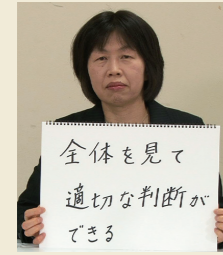 全体を見て
適切な判断が
できる